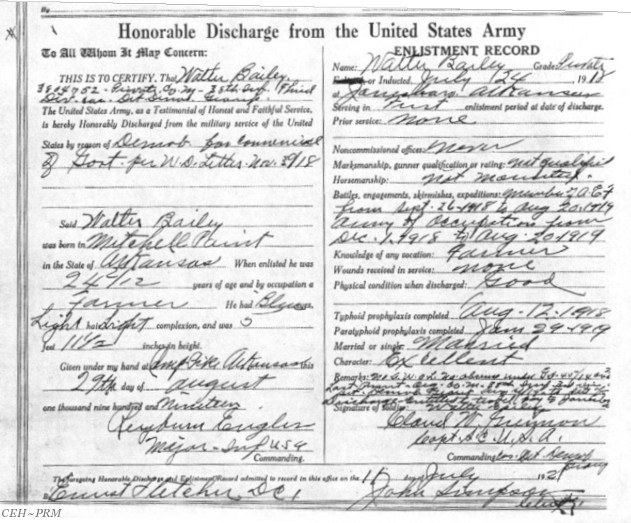 Honorable Discharge from the United States Army
To All Whom It May Concern:
THIS IS TO CERTIFY, That Walter Bailey
3804752 - Private Co. M - 38th Inf. Third
Div.
The United States Army, as a Testimonial of Honest and Faithful Service,
is hereby Honorably Discharged from the military service of the United
States by reason of Demob for convenience
of Govt. per W.D. Letter Nov.
Said Walter Bailey
was born in Mitchell Point
in the State of Arkansas When enlisted he was
24 1/2 years of age and by occupation a
Farmer He had Blue eyes,
Light hair Light complexion, and was 5
feet 11 1/2 inches in height.
Given under my hand at Camp Pike Arkansas this
29th day of August
one thousand nine hundred and Nineteen
Reyburn Engler
Major - Inf USA
Commanding.
ENLISTMENT RECORD
Name: Walter Bailey Grade: Private
or Inducted, July 24 1918
at Jonesboro Arkansas
Serving in First enlistment period at date of discharge.
Prior service: none
Noncommissioned officer: Never
Marksmanship, gunner qualification or rating: not qualified
Horsemanship: Not mounted
Battles, engagements, skirmishes, expeditions: Member A.E.F
from Sept. 1918 to Aug 20. 1919
Army of Occupation from
Dec. 1. 1918 to Aug - 20 1919
Knowledge of any vocation: Farmer
Wounds received in service: none
Physical condition when discharged: Good
Typhoid prophylaxis completed Aug - 12 - 1918
Paratyphoid prophylaxis completed Jan 29 - 1919
Married or single: Married
Character: Excellent
Remarks: No A.W.O.L. No absence under G.O. 45/14
Signature of soldier: Walter Bailey
Capt. U.S.A.
Commanding
The foregoing Honorable Discharge and Enlistment Record admitted to record in this office on the 11 day July 1921
Ernest Fletcher D.C. John Simpson
CEH~PRM